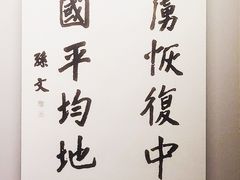 虜恢復中
國平均地
孫文